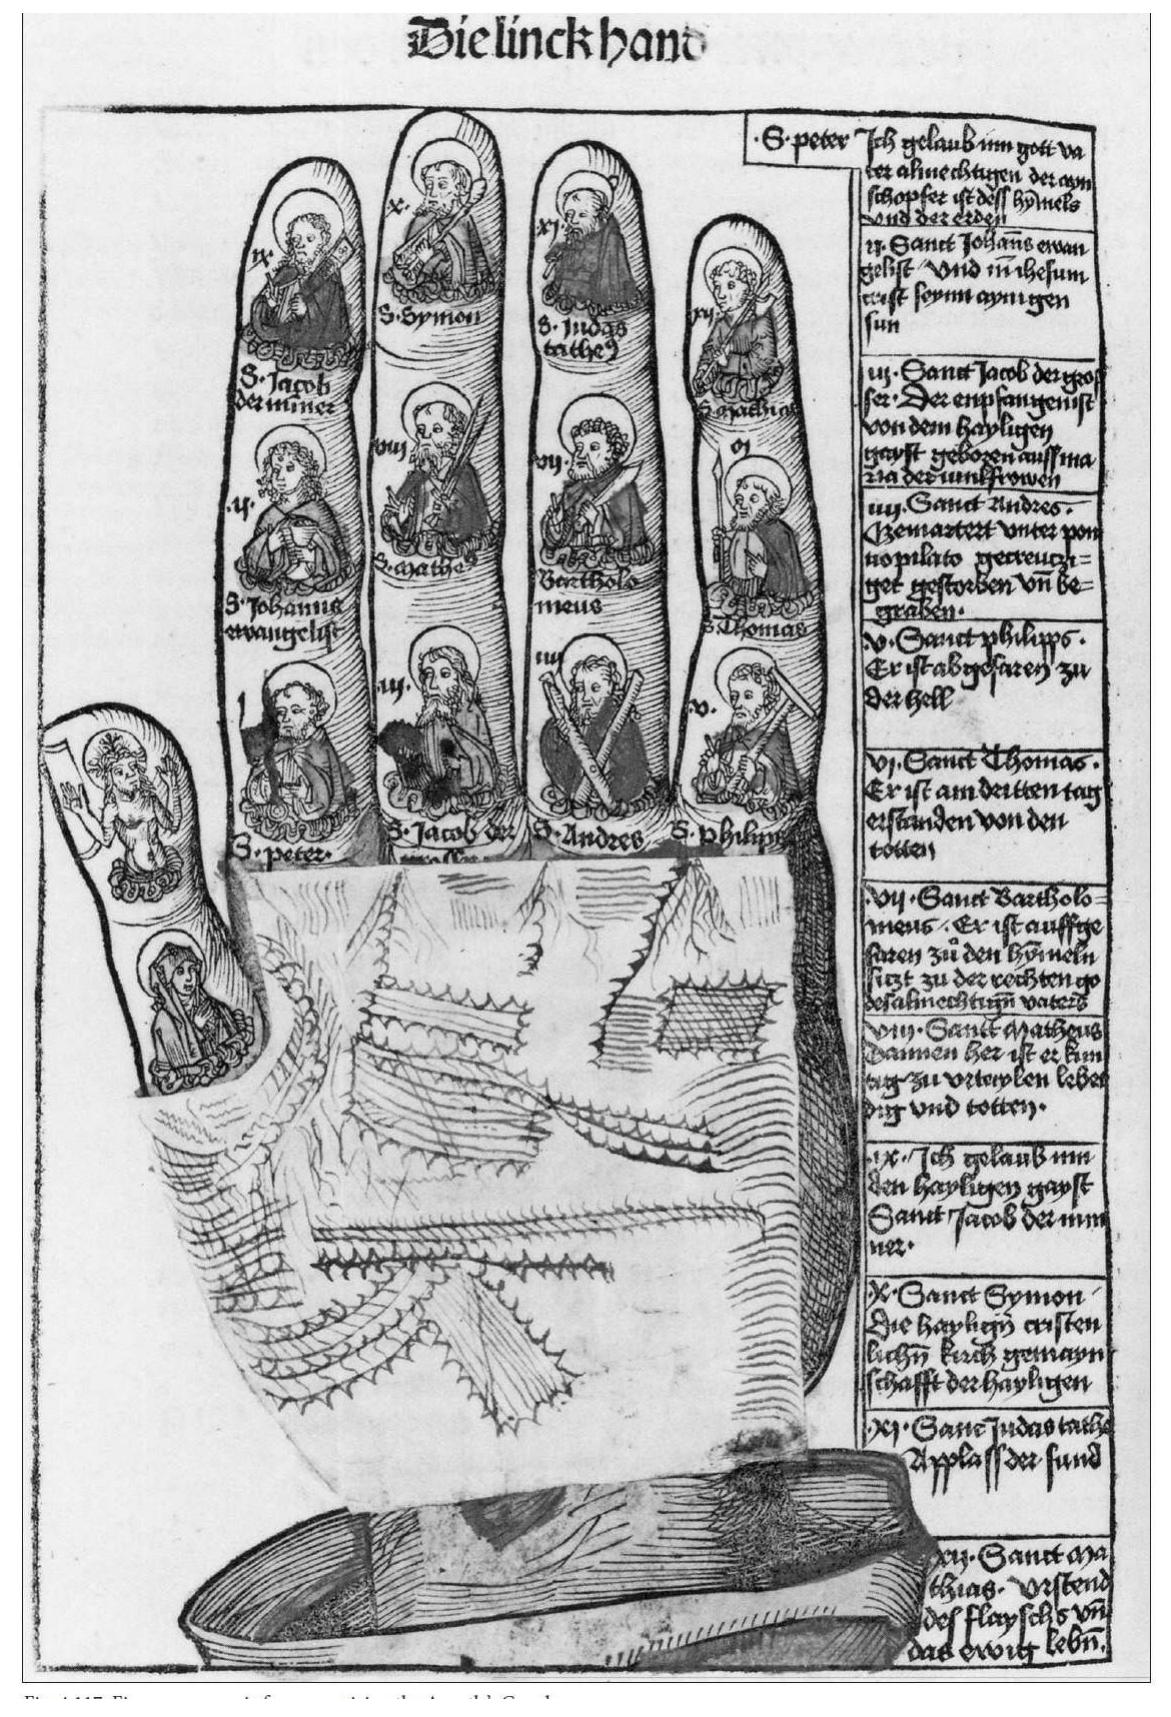 Die linck hand
·S· peter Ich gelaub inn gott va
ter almechtigen der ayn
schopfer ist dess hȳmels
vnd der erden
ij. Sanct Johan̄s ewan
gelist Vnd in̄ ihesum
crist seynn aynigen
sun
iij· Sanct Jacob der gros
ser· Der enpfangen ist
von dem hayligen
gayst geboren auss ma
ria der iunkfrowen
iiij· Sanct Andres·
Gemartert vnter pon
tio pilato gecreutzi=
get gestorben vn̄ be=
graben·
v· Sanct philipps·
Er ist abgefaren zu
der hell
vj. Sanct Thomas·
Er ist am dritten tag
erstanden von den
totten
·vij· Sanct Bartholo=
meus· Er ist auffge
faren zů den hȳmeln
sitzt zu der rechten go
des almechtign̄ vaters
viij· Sanct Matheus
Dannen her ist er kun
tig zu vrtaylen lebe
dig vnd totten·
·ix· Ich gelaub inn
den hayligen gayst
Sanct Jacob der min
ner·
·x· Sanct Symon
Die haylign̄ cristen
lichn̄ kirch gemayn
schafft der hayligen
·xj· Sanct Judas tathe
Applass der sund
xij· Sanct Ma
thias· vrstend
des flayschs vn̄
das ewig lebn̄·
ix
S· Jacob
der minner
·ij·
S· Johanns
ewangelist
I
S· peter·
x·
S· Symon
viij
S· Mathe
·iij·
S· Jacob der
xj
S· Judas
tatheꝯ
vij·
Bartholo
meus
iiij
S· Andres
xij
S· Mathias
vj
S· Thomas
·v·
S· philipp